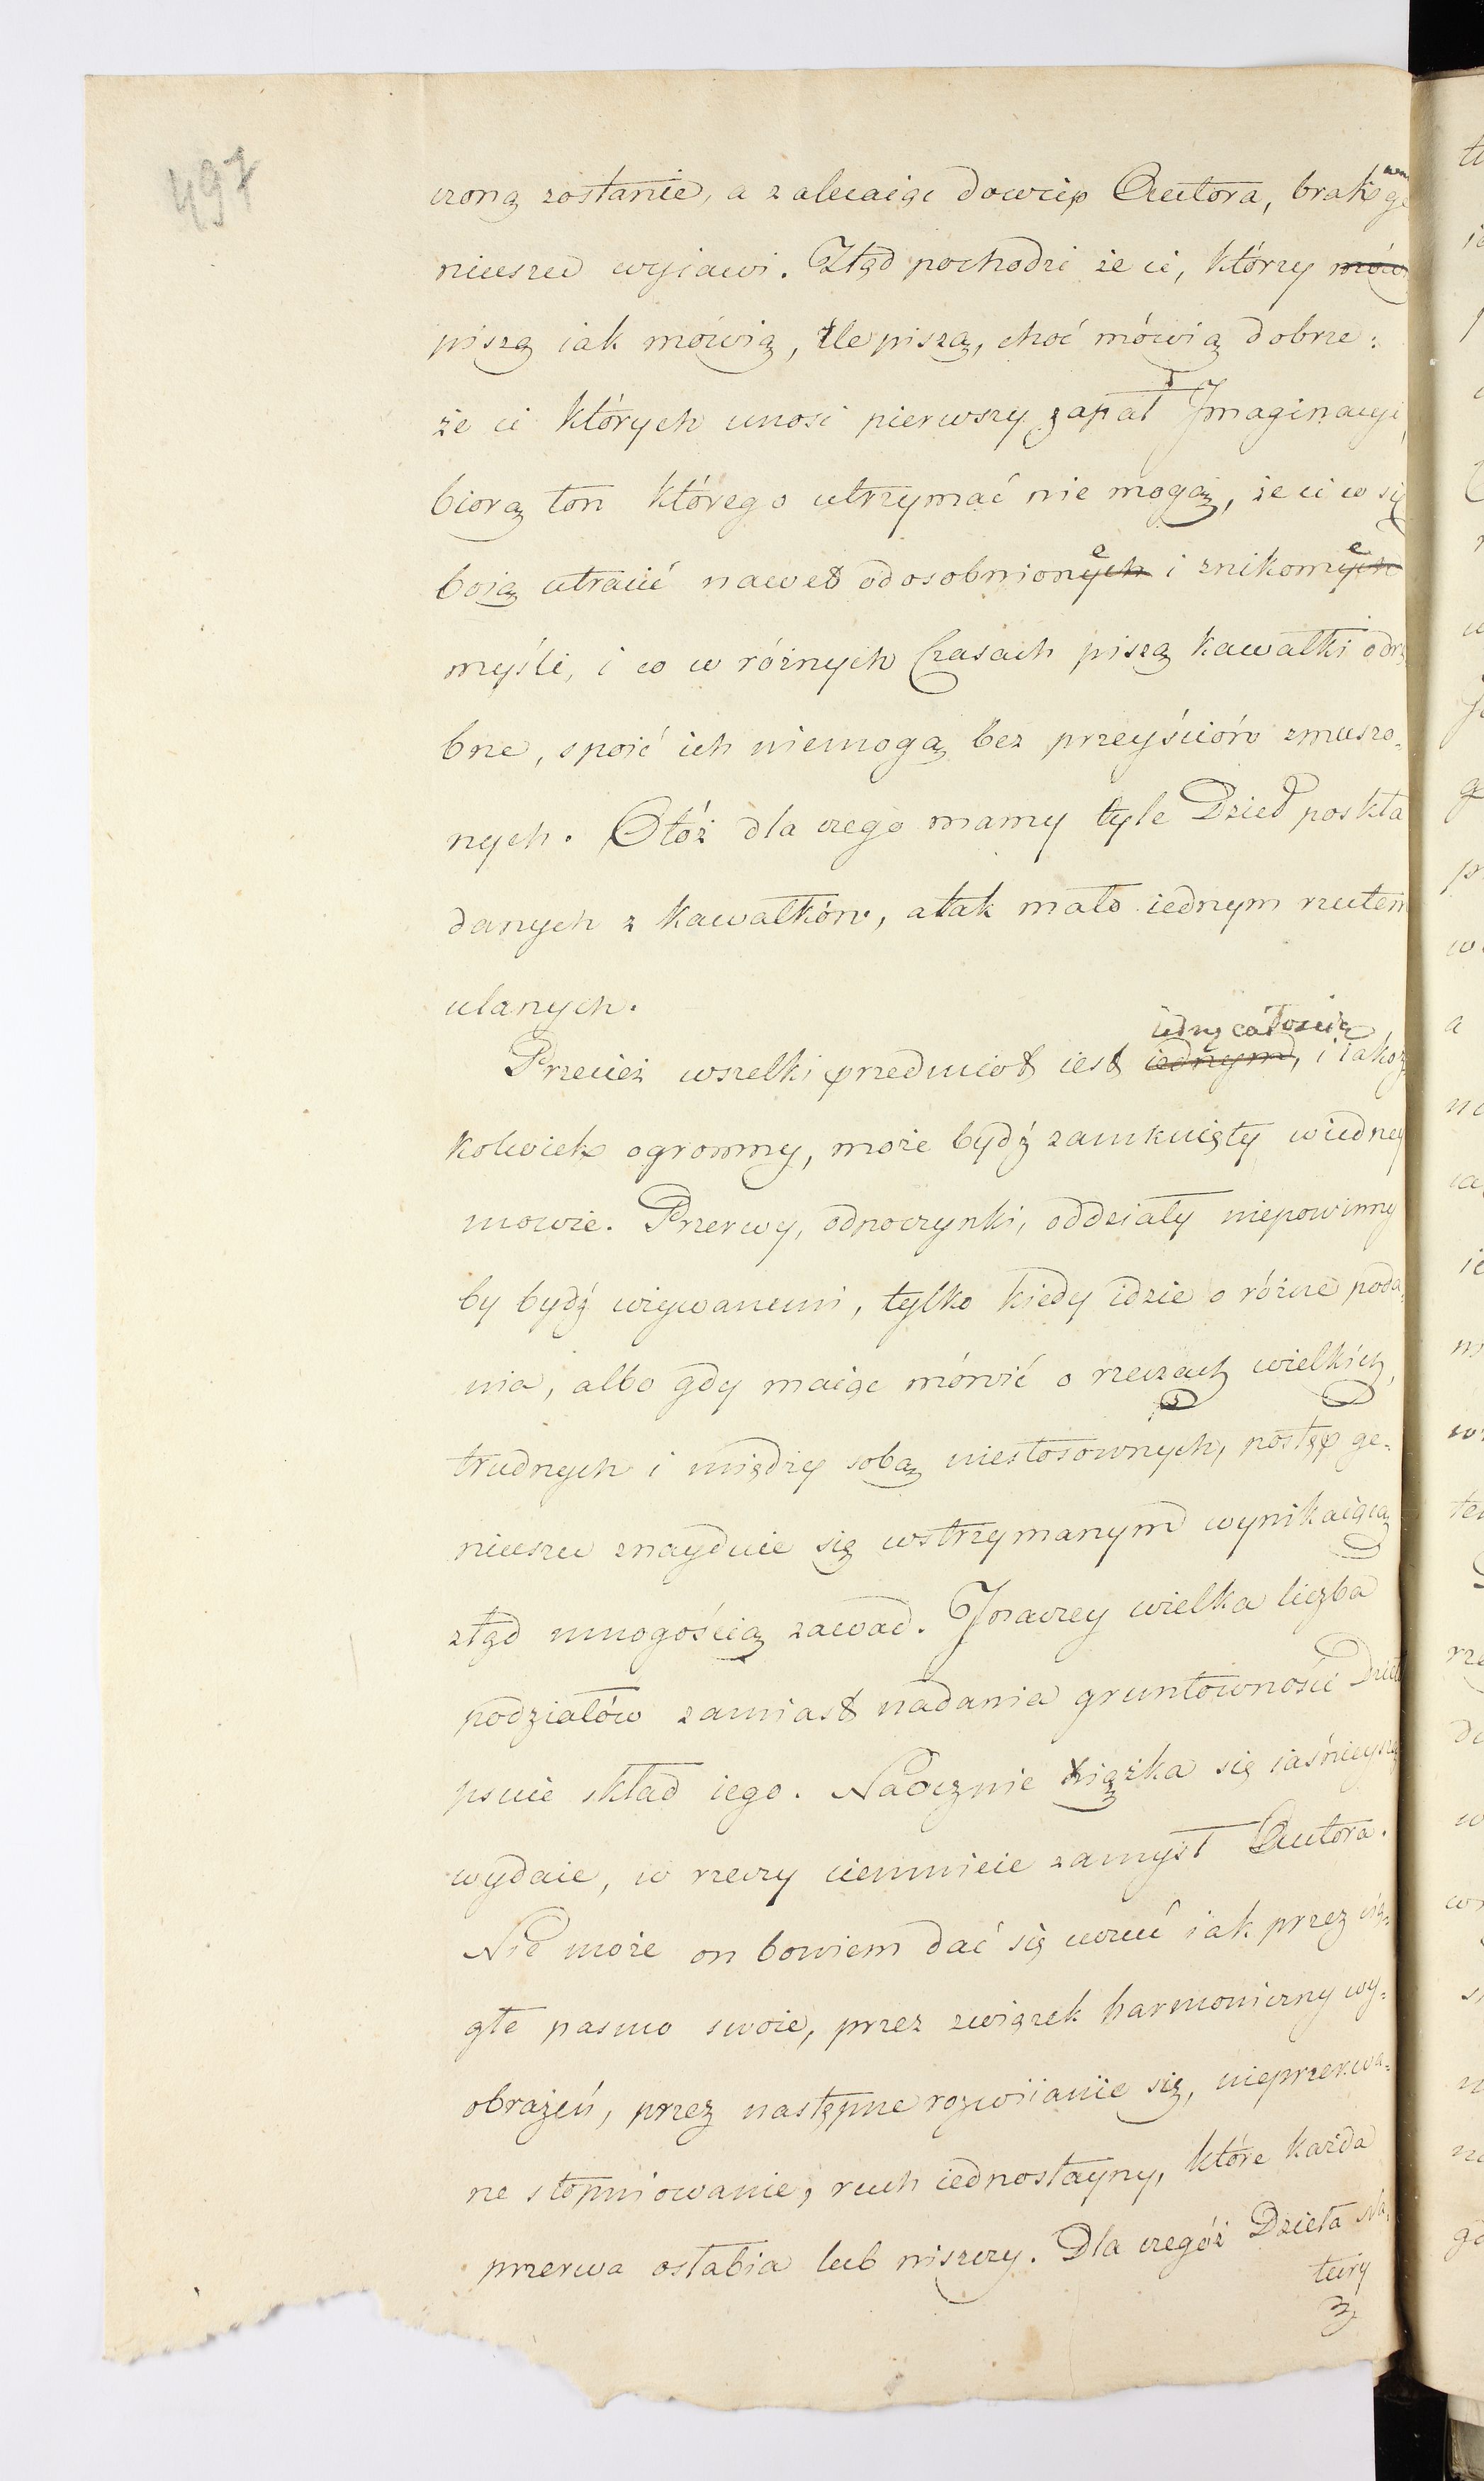 497
czoną zostanie, a zalecaiąc dowcip Autora, brak mu ge
nieuszu wyiawi. Ztąd pochodzi że ci, którzy mów
piszą iak mówią, źle piszą, choć mówią dobrze:
że ci których unosi pierwszy zapał Imaginacyi,
biorą ton którego utrzymać nie mogą, że ci co się
boią utracić nawet odosobnionych e i znikomych e
myśli, i co w różnych Czasach piszą kawałki odrę
bne, spoić ich niemogą bez przeyściów zmuszo„
nych. Otóż dla czego mamy tyle Dzieł poskła
danych z kawałków, a tak mało iednym rzutem
ulanych.
iedną całością
Przecież wszelki przedmiot iest iednym, i iakoż
kolwiek ogromny, może bydź zamknięty w iedney
mowie. Przerwy, odpoczynki, oddziały niepowinny
by bydź używanemi, tylko kiedy idzie o różne poda„
nia, albo gdy maiąc mówić o rzeczach wielkich,
trudnych i między sobą niestosownych, postęp ge„
nieuszu znayduie się wstrzymanym wynikaiącą
ztąd mnogością zawad. Inaczey wielka liczba
podziałów zamiast nadania gruntowności Dziełu
psuie skład iego. Naocznie Xiążka się iaśnieyszą
wydaie, w rzeczy ciemnieie zamysł Autora.
Nie może on bowiem dać się uczuć iak przez cią„
głe pasmo swoie, przez związek harmoniczny wy„
obrażeń, przez następne rozwiianie się, nieprzerwa„
ne stopniowanie, ruch iednostayny, które każda
przerwa osłabia lub niszczy. Dla czegóż Dzieła Na„
tury